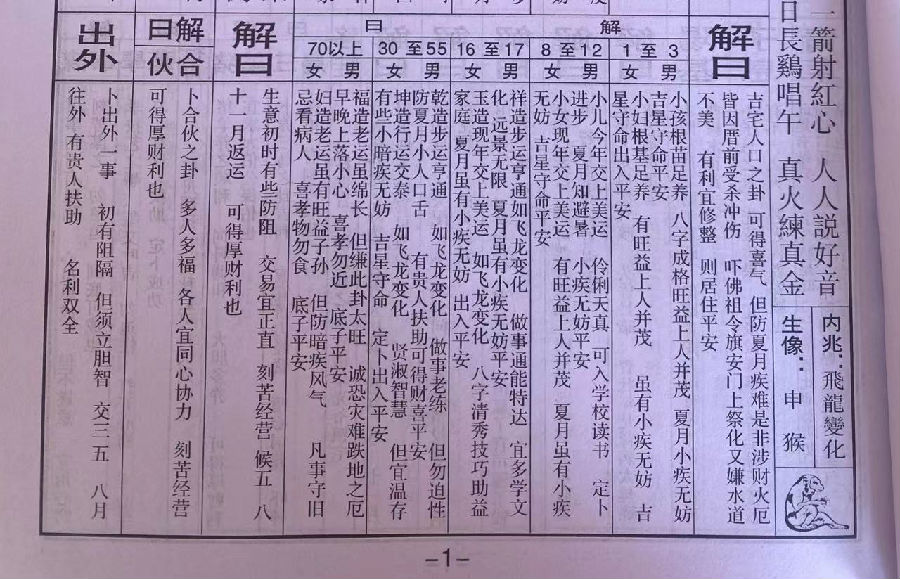 箭射紅心 人人説好音
日長鷄唱午 真火練真金
内兆：飛龍變化
生像：申 猴
解曰
古宅人口之卦 可得喜气 但防夏月疾难是非涉财火厄
皆因厝前受杀冲伤 吓佛祖令旗安门上祭化又嫌水道
不美 有利宜修整 则居住平安
解曰
1至3
男
小孩根苗足养 八字成格旺益上人并茂 夏月小疾无妨
吉星守命平安
女
小妇根基足养 有旺益上人并茂 虽有小疾无妨 吉
星守命出入平安
8至12
男
小儿今年交上美运 伶俐天真 可入学校读书 定卜
进步 夏月知避暑 小疾无妨平安
女
小女现年交上美运 有旺益上人并茂 夏月虽有小疾
无妨 吉星守命平安
16至17
男
祥造步运亨通如飞龙变化 做事通能特达 宜多学文
化 远景无限 夏月虽有小疾无妨平安
女
玉造现年交上美运 如飞龙变化 八字清秀技巧助益
家庭 夏月虽有小疾无妨 出入平安
30至55
男
乾造步运亨通 如飞龙变化 做事老练 但勿迫性
防夏月小人口舌 有贵人扶助可得财喜平安
女
坤造行运交泰 如飞龙变化 贤淑智慧 但宜温存
有些小暗疾无妨 吉星守命 定卜出入平安
70以上
男
福造老运虽绵长 但缘此卦太旺 诚恐灾难跌地之厄
早晚上落小心 喜孝勿近 底子平安
女
妇造老运虽有旺益子孙 但防暗疾风气 凡事守旧
忌看病人 喜孝物勿食 底子平安
解曰
生意初时有些防阻 交易宜正直 刻苦经营 候五 八
十一月返运 可得厚财利也
解曰
合伙
卜合伙之卦 多人多福 各人宜同心协力 刻苦经营
可得厚财利也
出外
卜出外一事 初有阻隔 但须立胆智 交三 五 八月
往外 有贵人扶助 名利双全
-1-